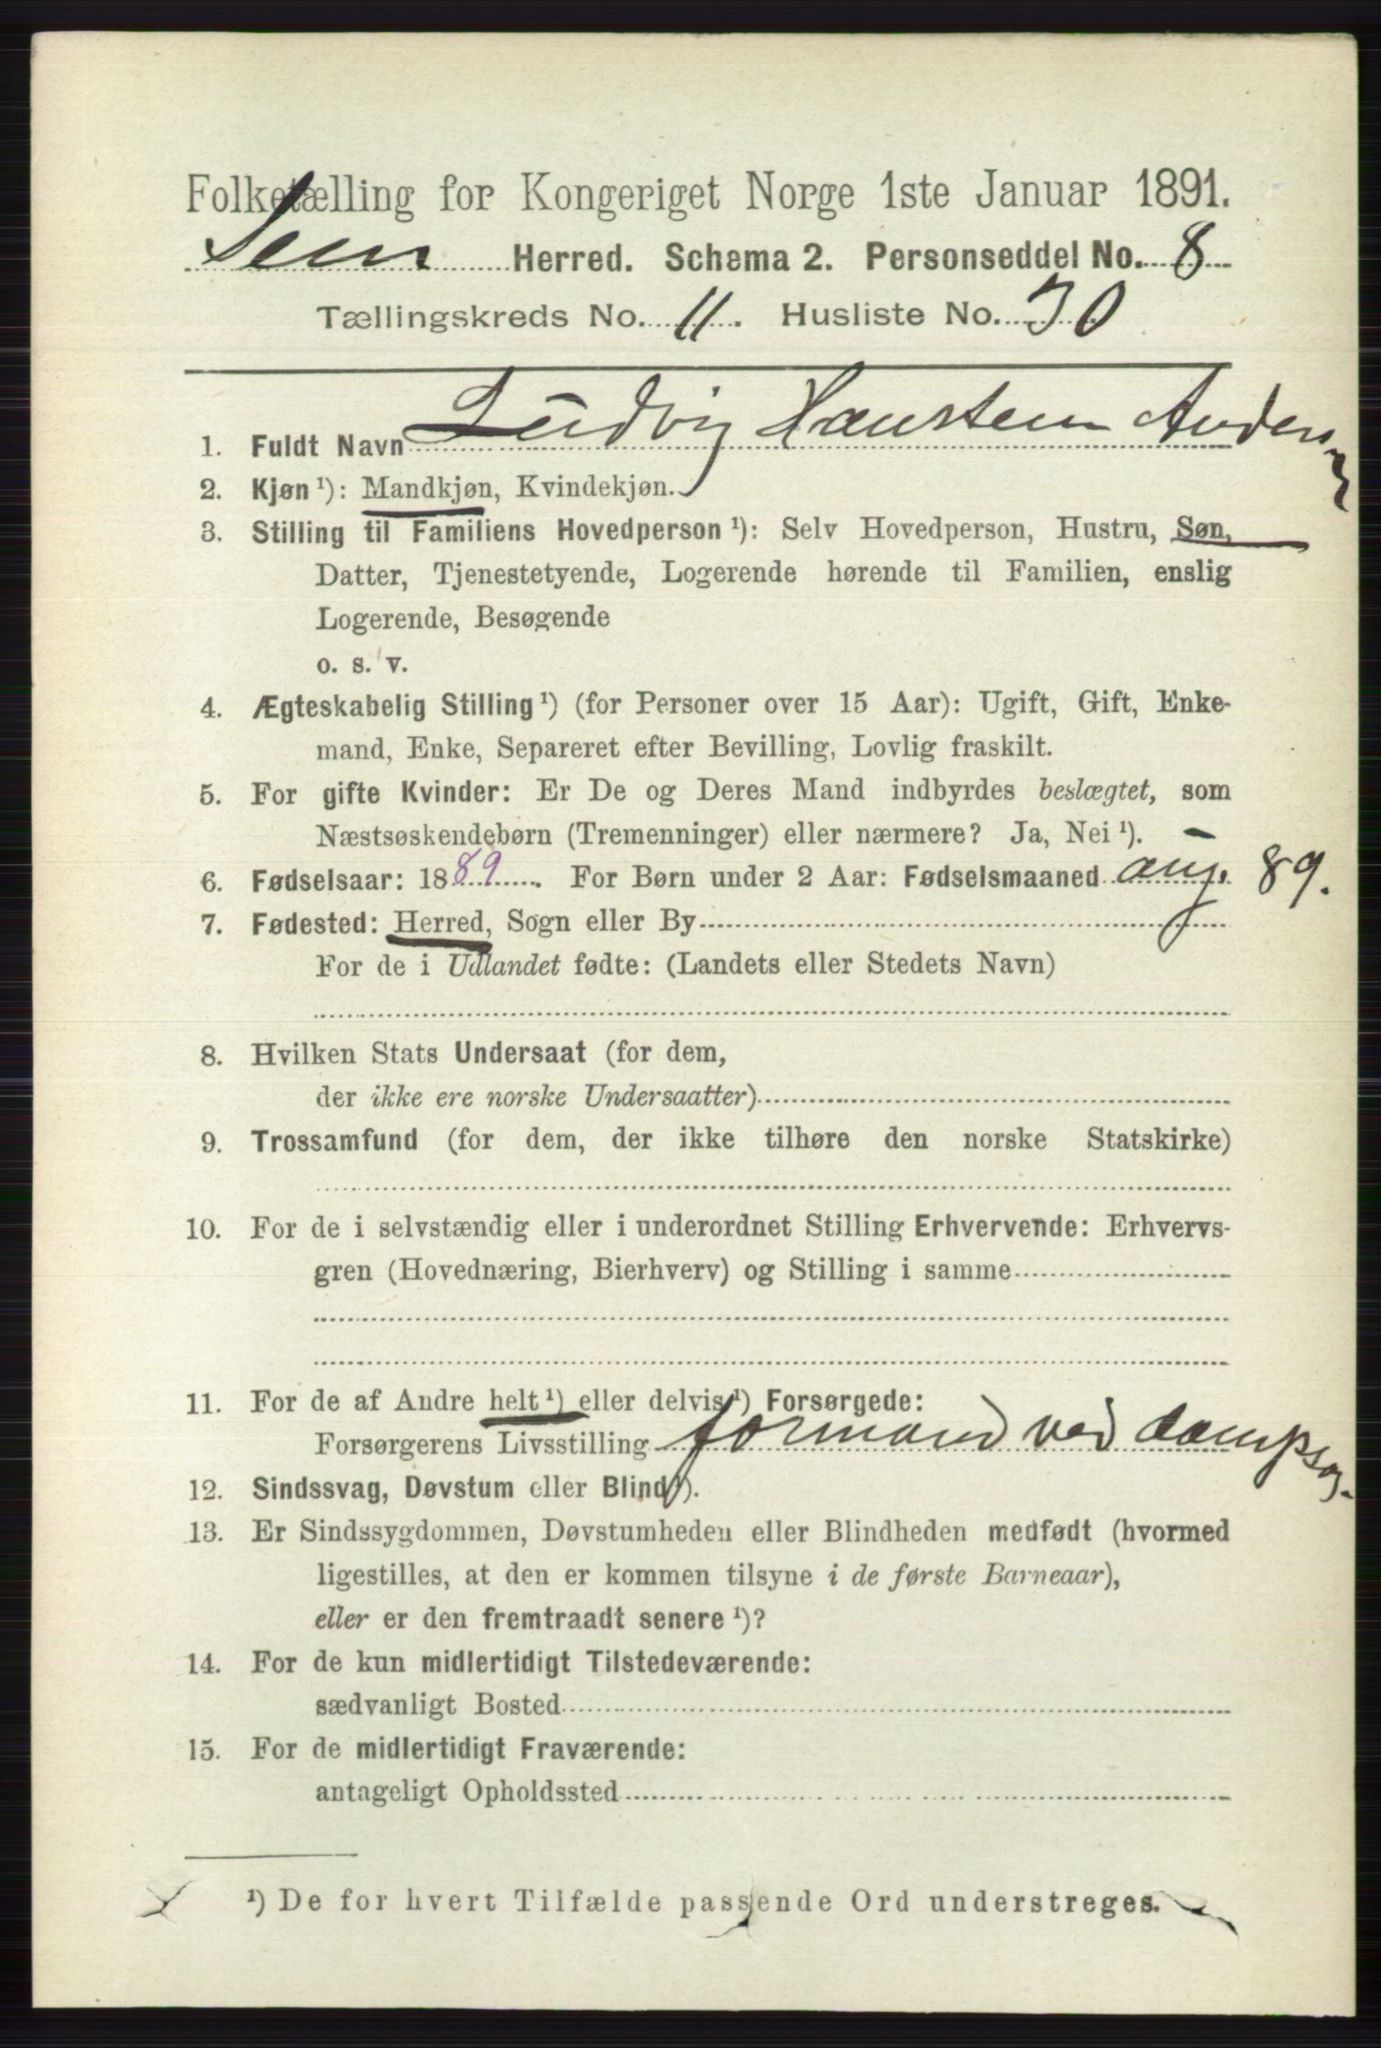 Folketælling for Kongeriget Norge 1ste Januar 1891.
Sem Herred. Schema 2. Personseddel No. 8
Tællingskreds No. 11. Husliste No. 30
1. Fuldt Navn Ludvig Hansteen Andersen
2. Kjøn ¹): Mandkjøn, Kvindekjøn.
3. Stilling til Familiens Hovedperson ¹): Selv Hovedperson, Hustru, Søn,
Datter, Tjenestetyende, Logerende hørende til Familien, enslig
Logerende, Besøgende
o. s. v.
4. Ægteskabelig Stilling ¹) (for Personer over 15 Aar): Ugift, Gift, Enke-
mand, Enke, Separeret efter Bevilling, Lovlig fraskilt.
5. For gifte Kvinder: Er De og Deres Mand indbyrdes beslægtet, som
Næstsøskendebørn (Tremenninger) eller nærmere? Ja, Nei ¹). –
6. Fødselsaar: 1889. For Børn under 2 Aar: Fødselsmaaned aug. 89.
7. Fødested: Herred, Sogn eller By
For de i Udlandet fødte: (Landets eller Stedets Navn)
8. Hvilken Stats Undersaat (for dem,
der ikke ere norske Undersaatter)
9. Trossamfund (for dem, der ikke tilhøre den norske Statskirke)
10. For de i selvstændig eller i underordnet Stilling Erhvervende: Erhvervs-
gren (Hovednæring, Bierhverv) og Stilling i samme
11. For de af Andre helt ¹) eller delvis ¹) Forsørgede:
Forsørgerens Livsstilling formand ved dampsag.
12. Sindssvag, Døvstum eller Blind ¹).
13. Er Sindssygdommen, Døvstumheden eller Blindheden medfødt (hvormed
ligestilles, at den er kommen tilsyne i de første Barneaar),
eller er den fremtraadt senere ¹)?
14. For de kun midlertidigt Tilstedeværende:
sædvanligt Bosted
15. For de midlertidigt Fraværende:
antageligt Opholdssted
¹) De for hvert Tilfælde passende Ord understreges.